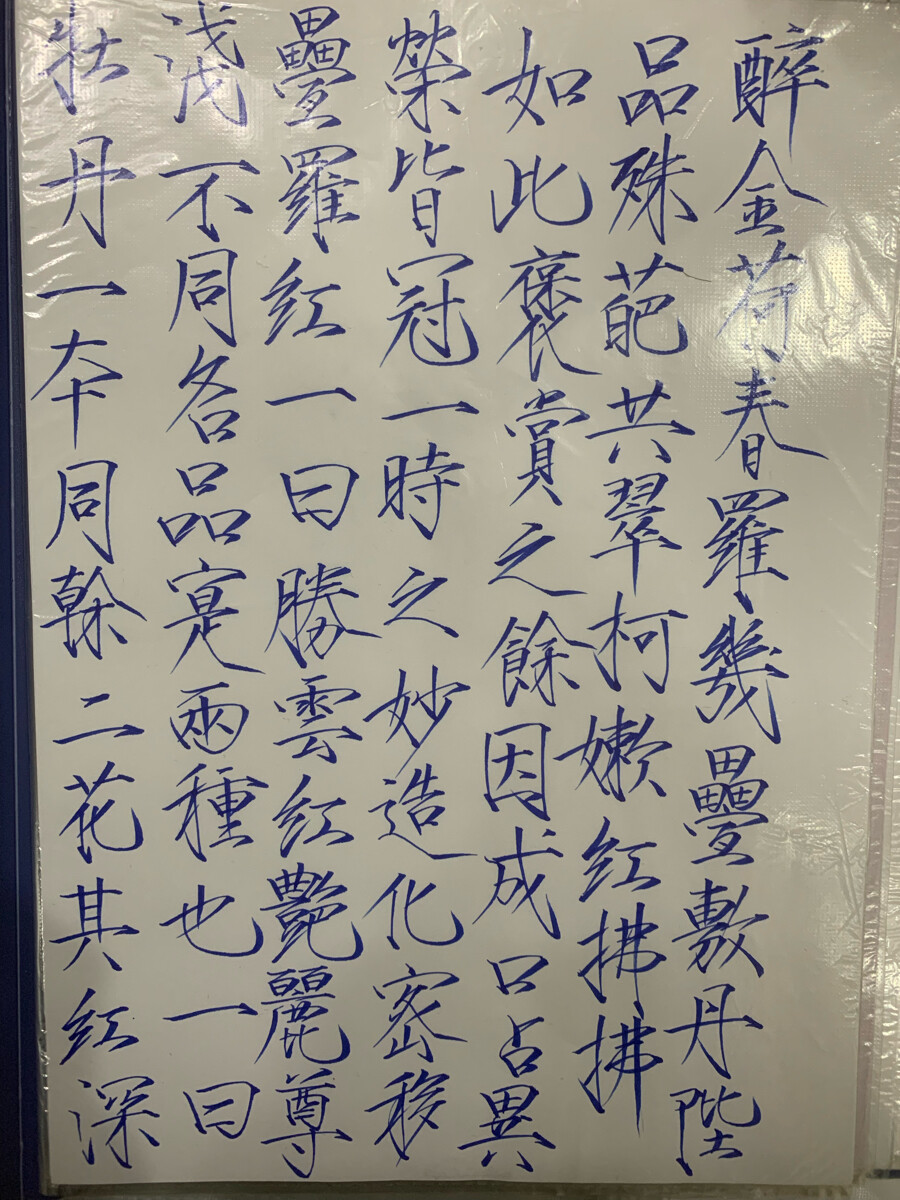 牡丹一本同幹二花其紅深
淺不同各品寔兩種也一曰
疊羅紅一曰勝雲紅艷麗尊
榮皆冠一時之妙造化密移
如此褒賞之餘因成口占異
品殊葩共翠柯嫩紅拂拂
醉金荷春羅幾疊敷丹陛